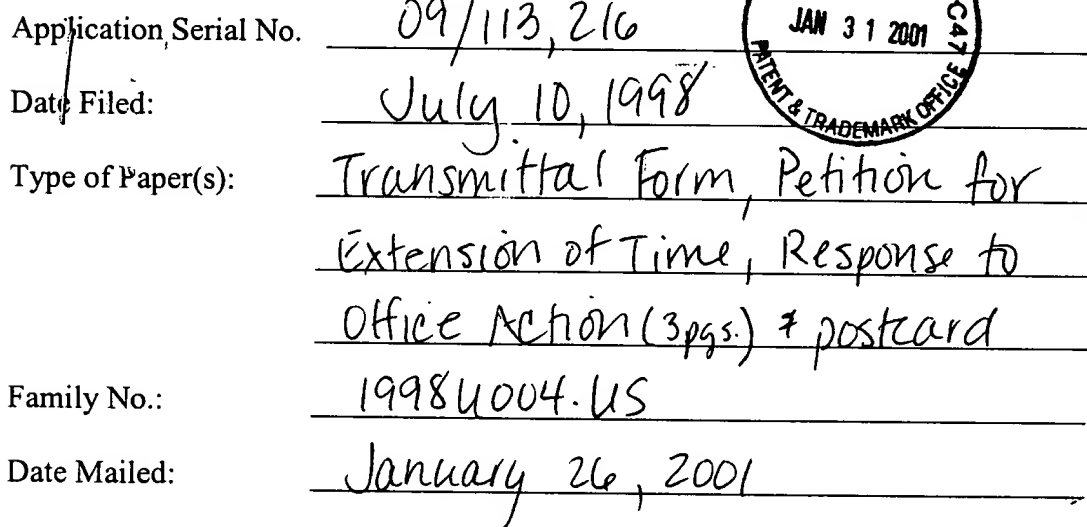 Application Serial No. 09/113,216
JAN 31 2001
PATENT & TRADEMARK OFFICE
Date Filed: July 10, 1998
Type of Paper(s): Transmittal Form, Petition for
Extension of Time, Response to
Office Action (3pgs.) & postcard
Family No.: 1998U004.US
Date Mailed: January 26, 2001